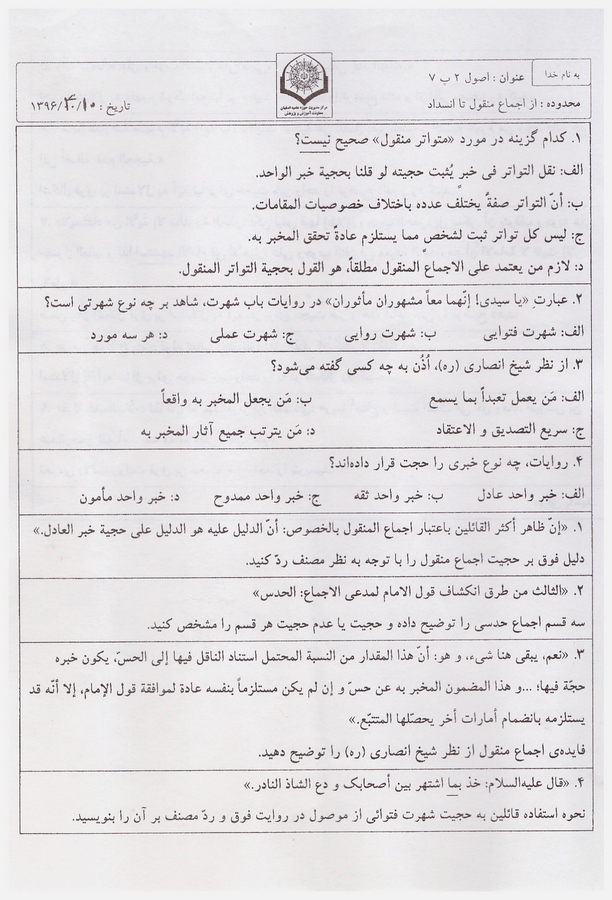 به نام خدا
عنوان : اصول ۲ ب ۷
محدوده : از اجماع منقول تا انسداد
مرکز مدیریت حوزه علمیه اصفهان
معاونت آموزش و پژوهش
تاریخ : ۱۳۹۶/۴۰/۱۰
۱. کدام گزینه در مورد «متواتر منقول» صحیح نیست؟
الف: نقل التواتر فی خبرٍ یُثبت حجیته لو قلنا بحجیة خبر الواحد.
ب: أنّ التواتر صفةٌ یختلف عدده باختلاف خصوصیات المقامات.
ج: لیس کل تواتر ثبت لشخصٍ مما یستلزم عادةً تحقق المخبر به.
د: لازم من یعتمد علی الاجماع المنقول مطلقاً، هو القول بحجیة التواتر المنقول.
۲. عبارتِ «یا سیدی! إنّهما معاً مشهوران مأثوران» در روایات باب شهرت، شاهد بر چه نوع شهرتی است؟
الف: شهرت فتوایی ب: شهرت روایی ج: شهرت عملی د: هر سه مورد
۳. از نظر شیخ انصاری (ره)، اُذُن به چه کسی گفته می‌شود؟
الف: مَن یعمل تعبداً بما یسمع ب: مَن یجعل المخبر به واقعاً
ج: سریع التصدیق و الاعتقاد د: مَن یترتب جمیع آثار المخبر به
۴. روایات، چه نوع خبری را حجت قرار داده‌اند؟
الف: خبر واحد عادل ب: خبر واحد ثقه ج: خبر واحد ممدوح د: خبر واحد مأمون
۱. «إنّ ظاهر أکثر القائلین باعتبار اجماع المنقول بالخصوص: أنّ الدلیل علیه هو الدلیل علی حجیة خبر العادل.»
دلیل فوق بر حجیت اجماع منقول را با توجه به نظر مصنف ردّ کنید.
۲. «الثالث من طرق انکشاف قول الامام لمدعی الاجماع: الحدس»
سه قسم اجماع حدسی را توضیح داده و حجیت یا عدم حجیت هر قسم را مشخص کنید.
۳. «نعم، یبقی هنا شیء، و هو: أنّ هذا المقدار من النسبة المحتمل استناد الناقل فیها إلی الحسّ، یکون خبره
حجّة فیها؛ ...و هذا المضمون المخبر به عن حسّ و إن لم یکن مستلزماً بنفسه عادة لموافقة قول الإمام، إلا أنّه قد
یستلزمه بانضمام أمارات أخر یحصّلها المتتبّع.»
فایده‌ی اجماع منقول از نظر شیخ انصاری (ره) را توضیح دهید.
۴. «قال علیه‌السلام: خذ بما اشتهر بین أصحابک و دع الشاذ النادر.»
نحوه استفاده قائلین به حجیت شهرت فتوائی از موصول در روایت فوق و ردّ مصنف بر آن را بنویسید.